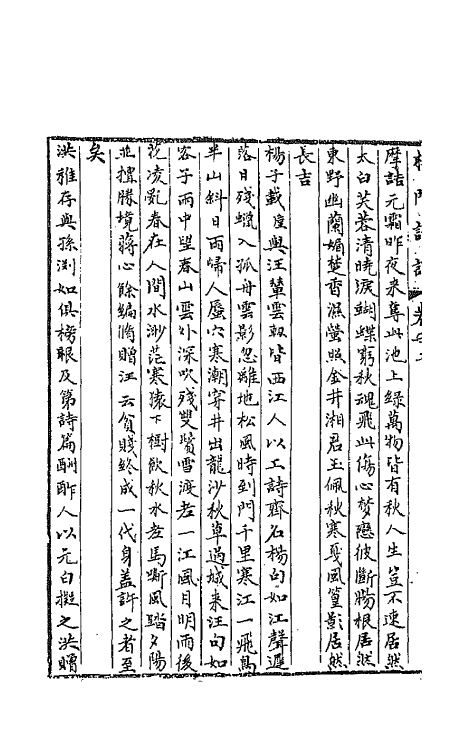 門詩話 卷
摩詰元霜昨夜來尊此池上綠萬物皆有秋人生豈不速居然
太白芙蓉清曉淚蝴蝶窮秋魂飛此傷心梦戀彼斷腸根居然
東野幽蘭媚楚香濕螢照金井湘君玉佩秋寒戛風篁影居然
長吉
楊子載垕與汪輦雲軔皆西江人以工詩齊名楊句如江聲遲
落日殘蠟入孤舟雲影忽離地松風時到門千里寒江一飛鳥
半山斜日兩歸人蜃穴寒潮穿井出龍沙秋草過城來汪句如
客子雨中望春山雲外深吹殘雙鬢雪渡老一江風月明雨後
花凌亂春在人閒水渺茫寒猿下樹飲秋水老馬嘶風踏夕陽
並擅勝境蔣心餘編脩贈汪云貧賤終成一代身蓋許之者至
矣
洪稚存與孫淵如俱榜眼及第詩篇酬酢人以元白擬之洪贈